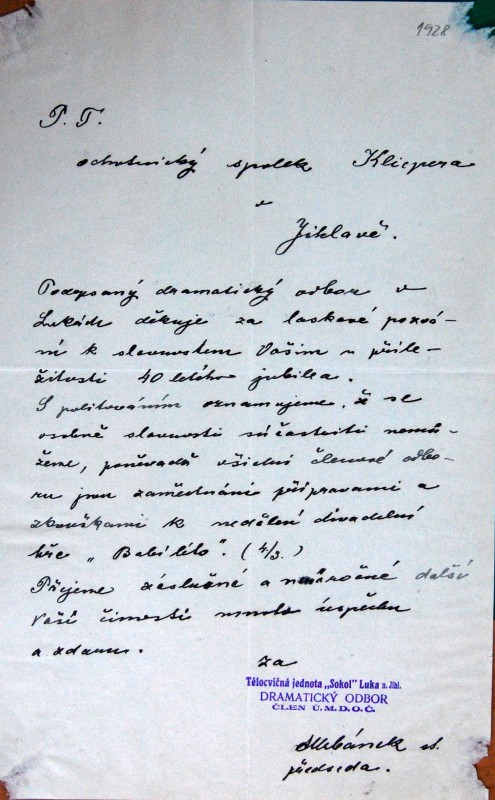 1928
P. T.
ochotnický spolek Klicpera
v
Jihlavě.
Podepsaný dramatický odbor v
Lukách děkuje za laskavé pozvá-
ní k slavnostem Vašim u příle-
žitosti 40 letého jubilea.
S politováním oznamujeme, že se
osobně slavnosti súčastniti nemů-
žeme, poněvadž všichni členové odbo-
ru jsou zaměstnáni přípravami a
zkouškami k nedělní divadelní
hře „Babí léto". (4/3.)
Přejeme záslužné a nenáročné další
Vaší činnosti mnoho úspěchu
a zdaru.
za
Tělocvičná jednota „Sokol" Luka n. Jihl.
DRAMATICKÝ ODBOR
ČLEN Ú.M.D.O.Č.
předseda.